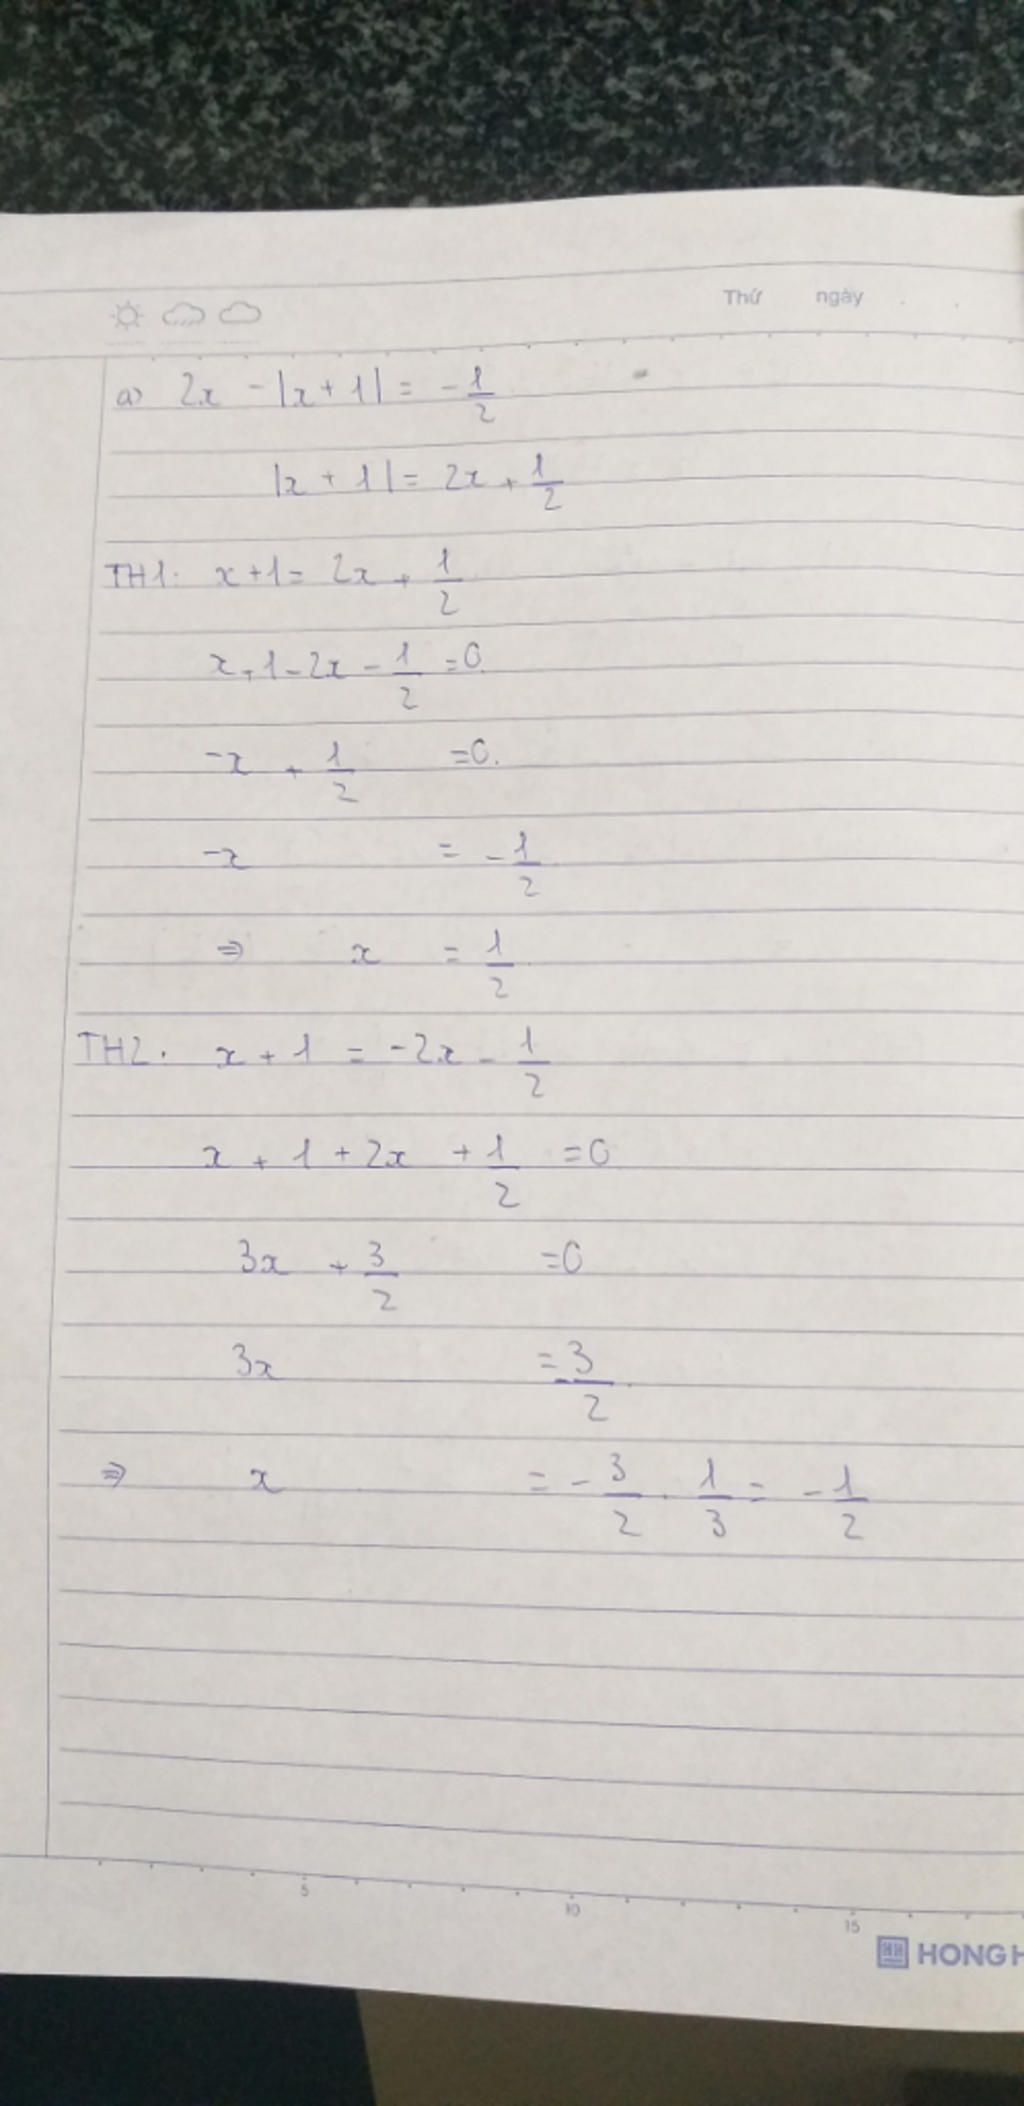 Thứ ngày
a) 2x - |x + 1| = - 1/2
|x + 1| = 2x + 1/2
TH1: x + 1 = 2x + 1/2
x + 1 - 2x - 1/2 = 0
-x + 1/2 = 0.
-x = - 1/2
⇒ x = 1/2
TH2: x + 1 = -2x - 1/2
x + 1 + 2x + 1/2 = 0
3x + 3/2 = 0
3x = - 3/2
⇒ x = - 3/2 . 1/3 = - 1/2
5 10 15
HONG H